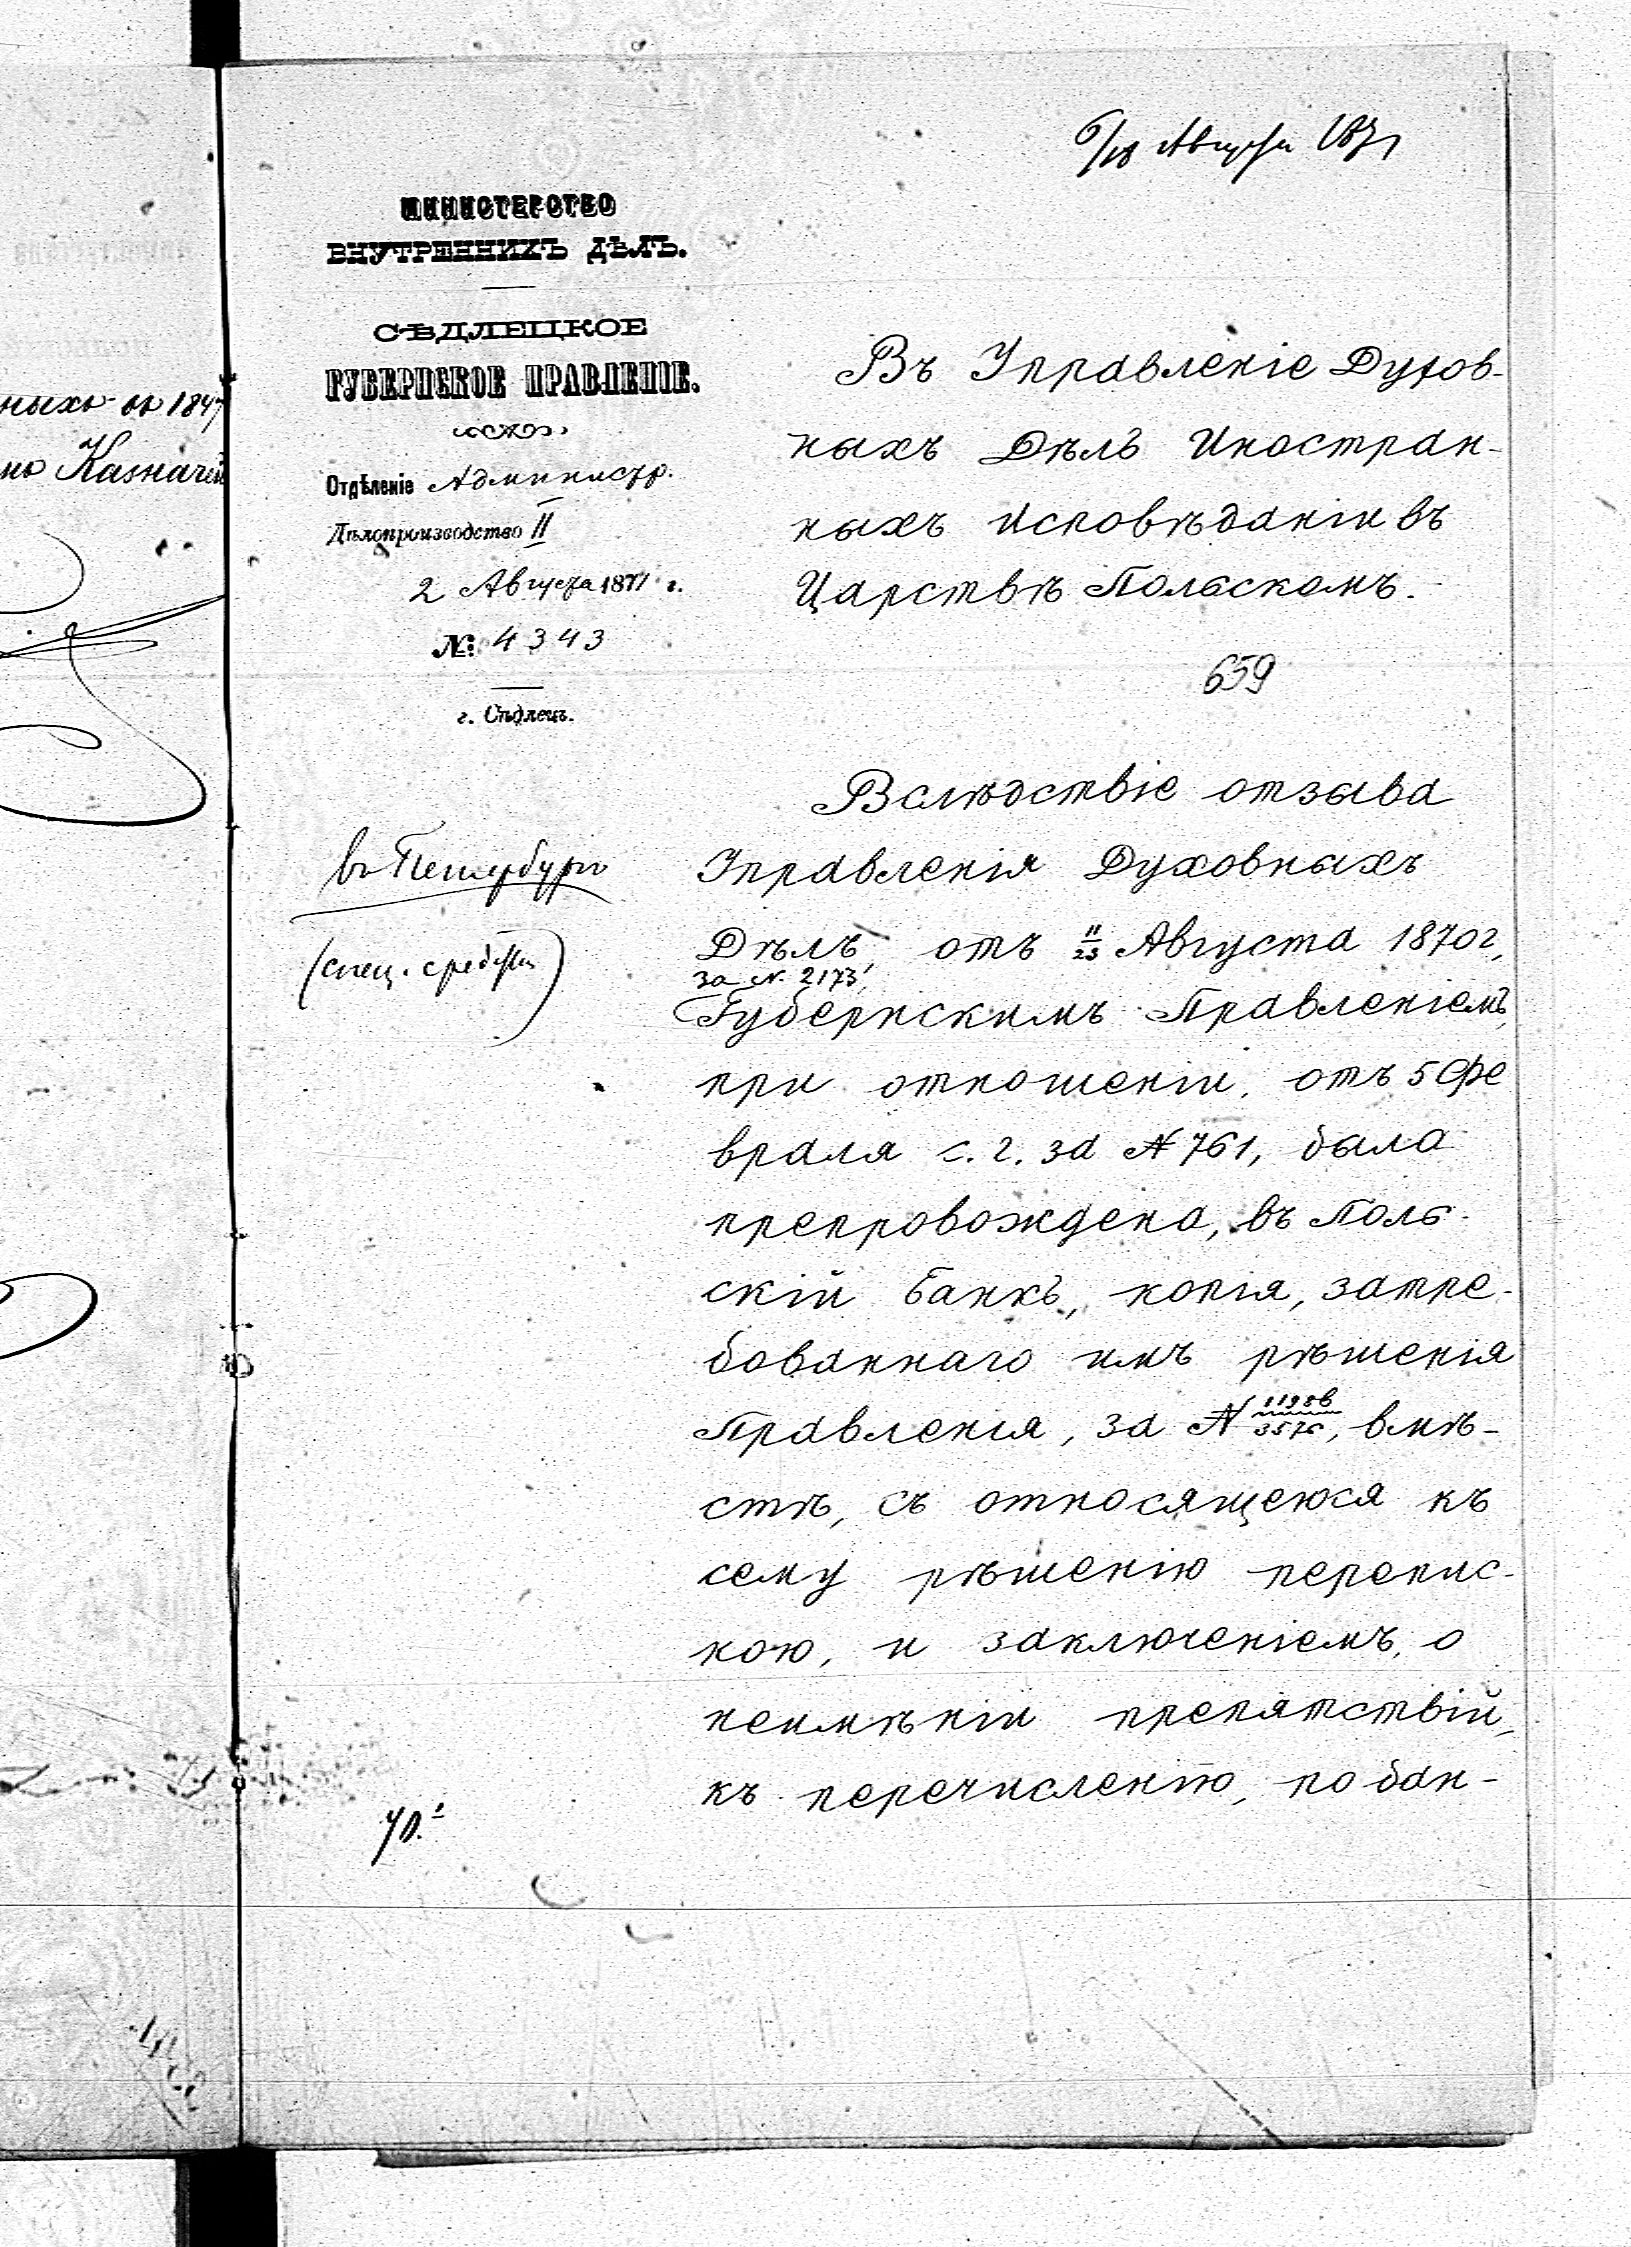 6/18 Августа 1871
МИНИСТЕРСТВО
ВНУТРЕННИХЪ ДѢЛЪ.
СѢДЛЕЦКОЕ
ГУБЕРНСКОЕ ПРАВЛЕНІЕ.
Отдѣленіе Администр.
Дѣлопроизводство II
2 Августа 1871 г.
№: 4343
г. Сѣдлецъ.
Въ Управленіе Духов-
ныхъ Дѣлъ Иностран-
ныхъ Исповѣданіи въ
Царствѣ Польскомъ.
659
въ Петербургъ
(спец. средства)
Вслѣдствіе отзыва
Управленія Духовныхъ
Дѣлъ, отъ 11/23 Августа 1870 г,
за N. 2173,
Губернскимъ Правленіемъ,
при отношеніи, отъ 5 Фе
враля с. г. за N 761, была
препровождена, въ Поль-
скій Банкъ, копія, затре-
бованнаго имъ рѣшенія
Правленія, за N 11988/3576, вмѣ-
стѣ, съ относящеюся къ
сему рѣшенію перепис-
кою, и заключеніемъ, о
неимѣніи препятствій,
къ перечисленію, по бан-
ныхъ въ 1847
Казначей